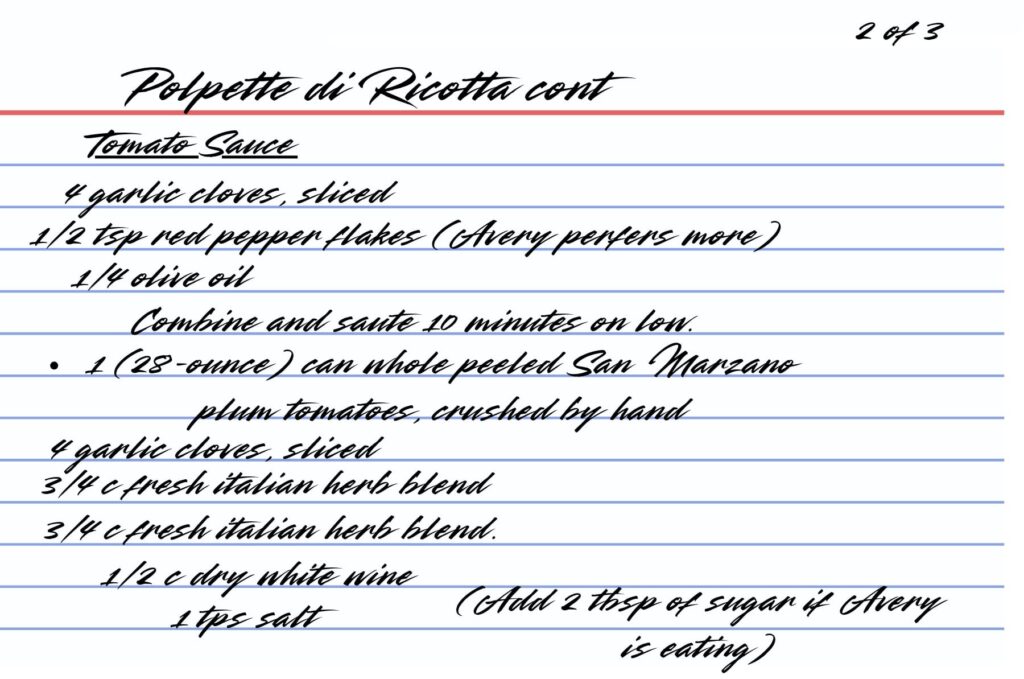 2 of 3
Polpette di Ricotta cont
Tomato Sauce
4 garlic cloves, sliced
1/2 tsp red pepper flakes (Avery perfers more)
1/4 olive oil
Combine and saute 10 minutes on low.
• 1 (28-ounce) can whole peeled San Marzano
plum tomatoes, crushed by hand
4 garlic cloves, sliced
3/4 c fresh italian herb blend
3/4 c fresh italian herb blend.
1/2 c dry white wine
1 tps salt
(Add 2 tbsp of sugar if Avery
is eating)